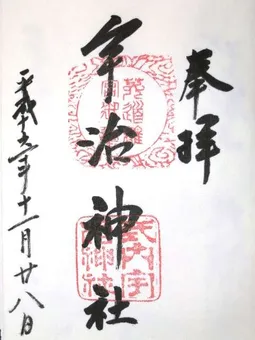 奉拝
宇治神社
式内宇
治神社
平成十五年十一月廿八日